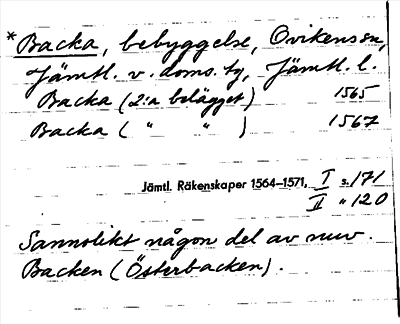 *Backa, bebyggelse, Ovikens sn,
Jämtl. v. doms. tg, Jämtl. l.
Backa (2:a belägget) 1565
Backa ( " " ) 1567
Jämtl. Räkenskaper 1564–1571, I s. 171
II " 120
Sannolikt någon del av nuv.
Backen (Österbacken).